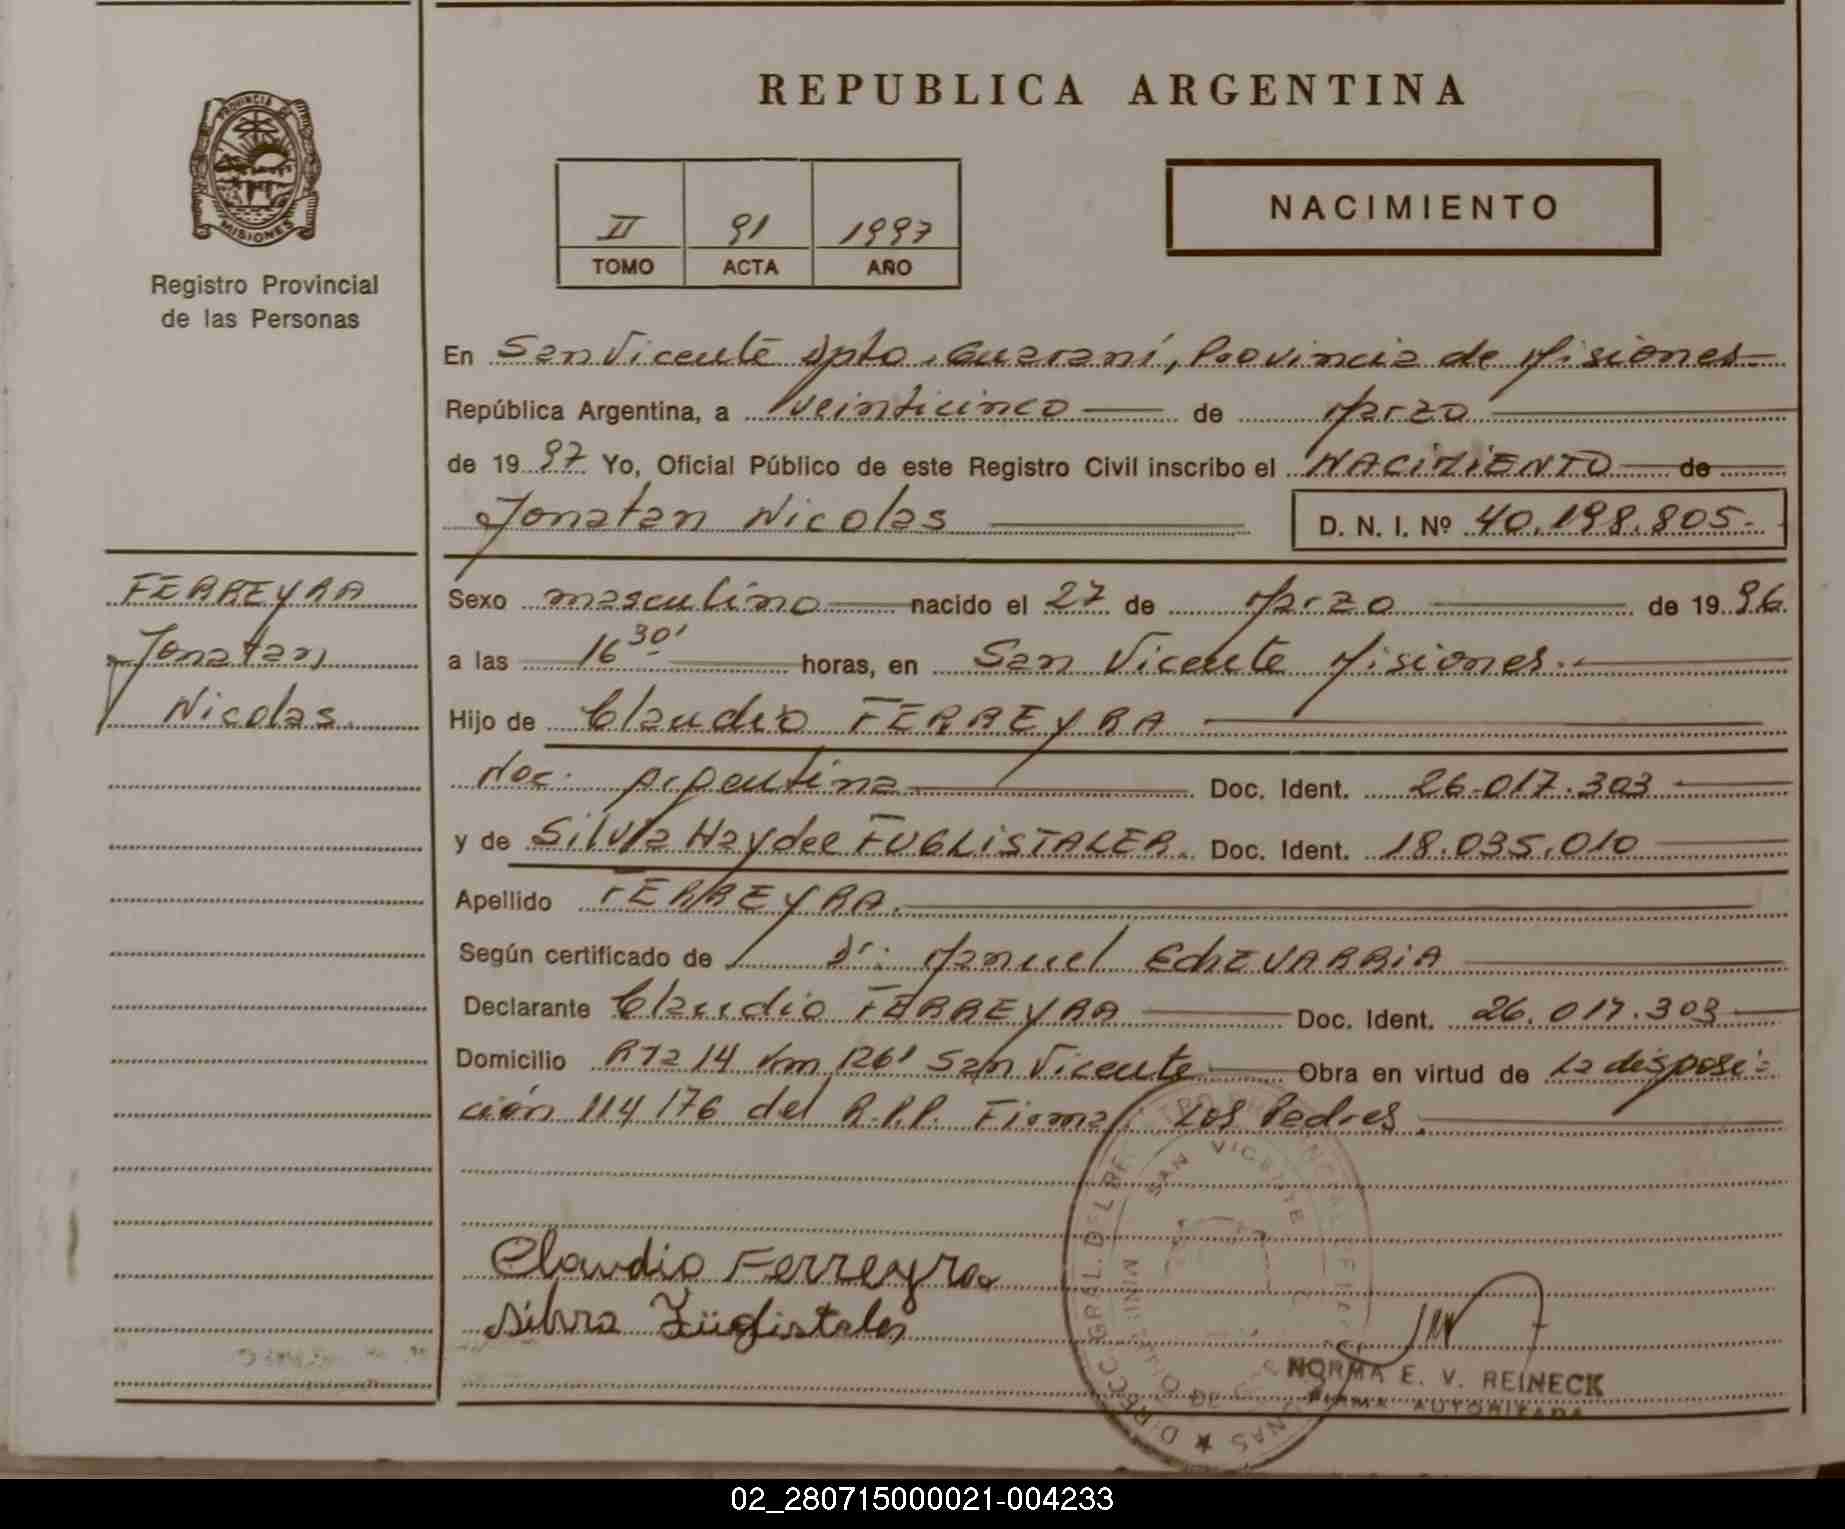 REPUBLICA ARGENTINA
PROVINCIA DE
MISIONES
Registro Provincial
de las Personas
II 91 1997
TOMO ACTA AÑO
NACIMIENTO
En San Vicente Dpto. Guaraní, Provincia de Misiones
República Argentina, a veinticinco de Marzo
de 1997 Yo, Oficial Público de este Registro Civil inscribo el NACIMIENTO de
Jonatan Nicolas
D. N. I. Nº 40.198.805.-
FERREYRA
Jonatan
Nicolas.
Sexo masculino nacido el 27 de Marzo de 1996.
a las 16 30' horas, en San Vicente Misiones.-
Hijo de Claudio FERREYRA
Nac. Argentina Doc. Ident. 26.017.303
y de Silvia Haydee FUGLISTALER. Doc. Ident. 18.035.010
Apellido FERREYRA.
Según certificado de Dr. Manuel EchEVARRiA
Declarante Claudio FERREYRA Doc. Ident. 26.017.303
Domicilio Rta 14 Km 126' San Vicente Obra en virtud de la disposi-
ción 114/76 del R.P.P. Firma: Los Padres.
Claudio Ferreyra
Silvia Füglistaler
SAN VICENTE
NORMA E. V. REINECK
FIRMA AUTORIZADA
02_280715000021-004233